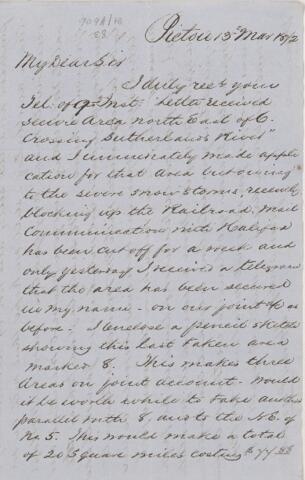 Pictou 13th Mar 1872
My Dear Sir
I duly recd your
Tel. of 9th Inst "letter received
secure Area north East of 6.
Crossing Sutherlands River"
and I immediately made appli
cation for that Area but owing
to the severe snow storms, recently
blocking up the Railroad, Mail
Communication with Halifax
has been cut off for a week and
only yesterday I received a telegram
that the area has been secured
in my name - on our joint a/c as
before. I enclose a pencil sketch
showing this last taken area
marked 8. This makes three
Areas on joint account. Would
it be worth while to take another
parallel with 8, and to the N.E. of
No 5. This would make a total
of 20 Square miles costing